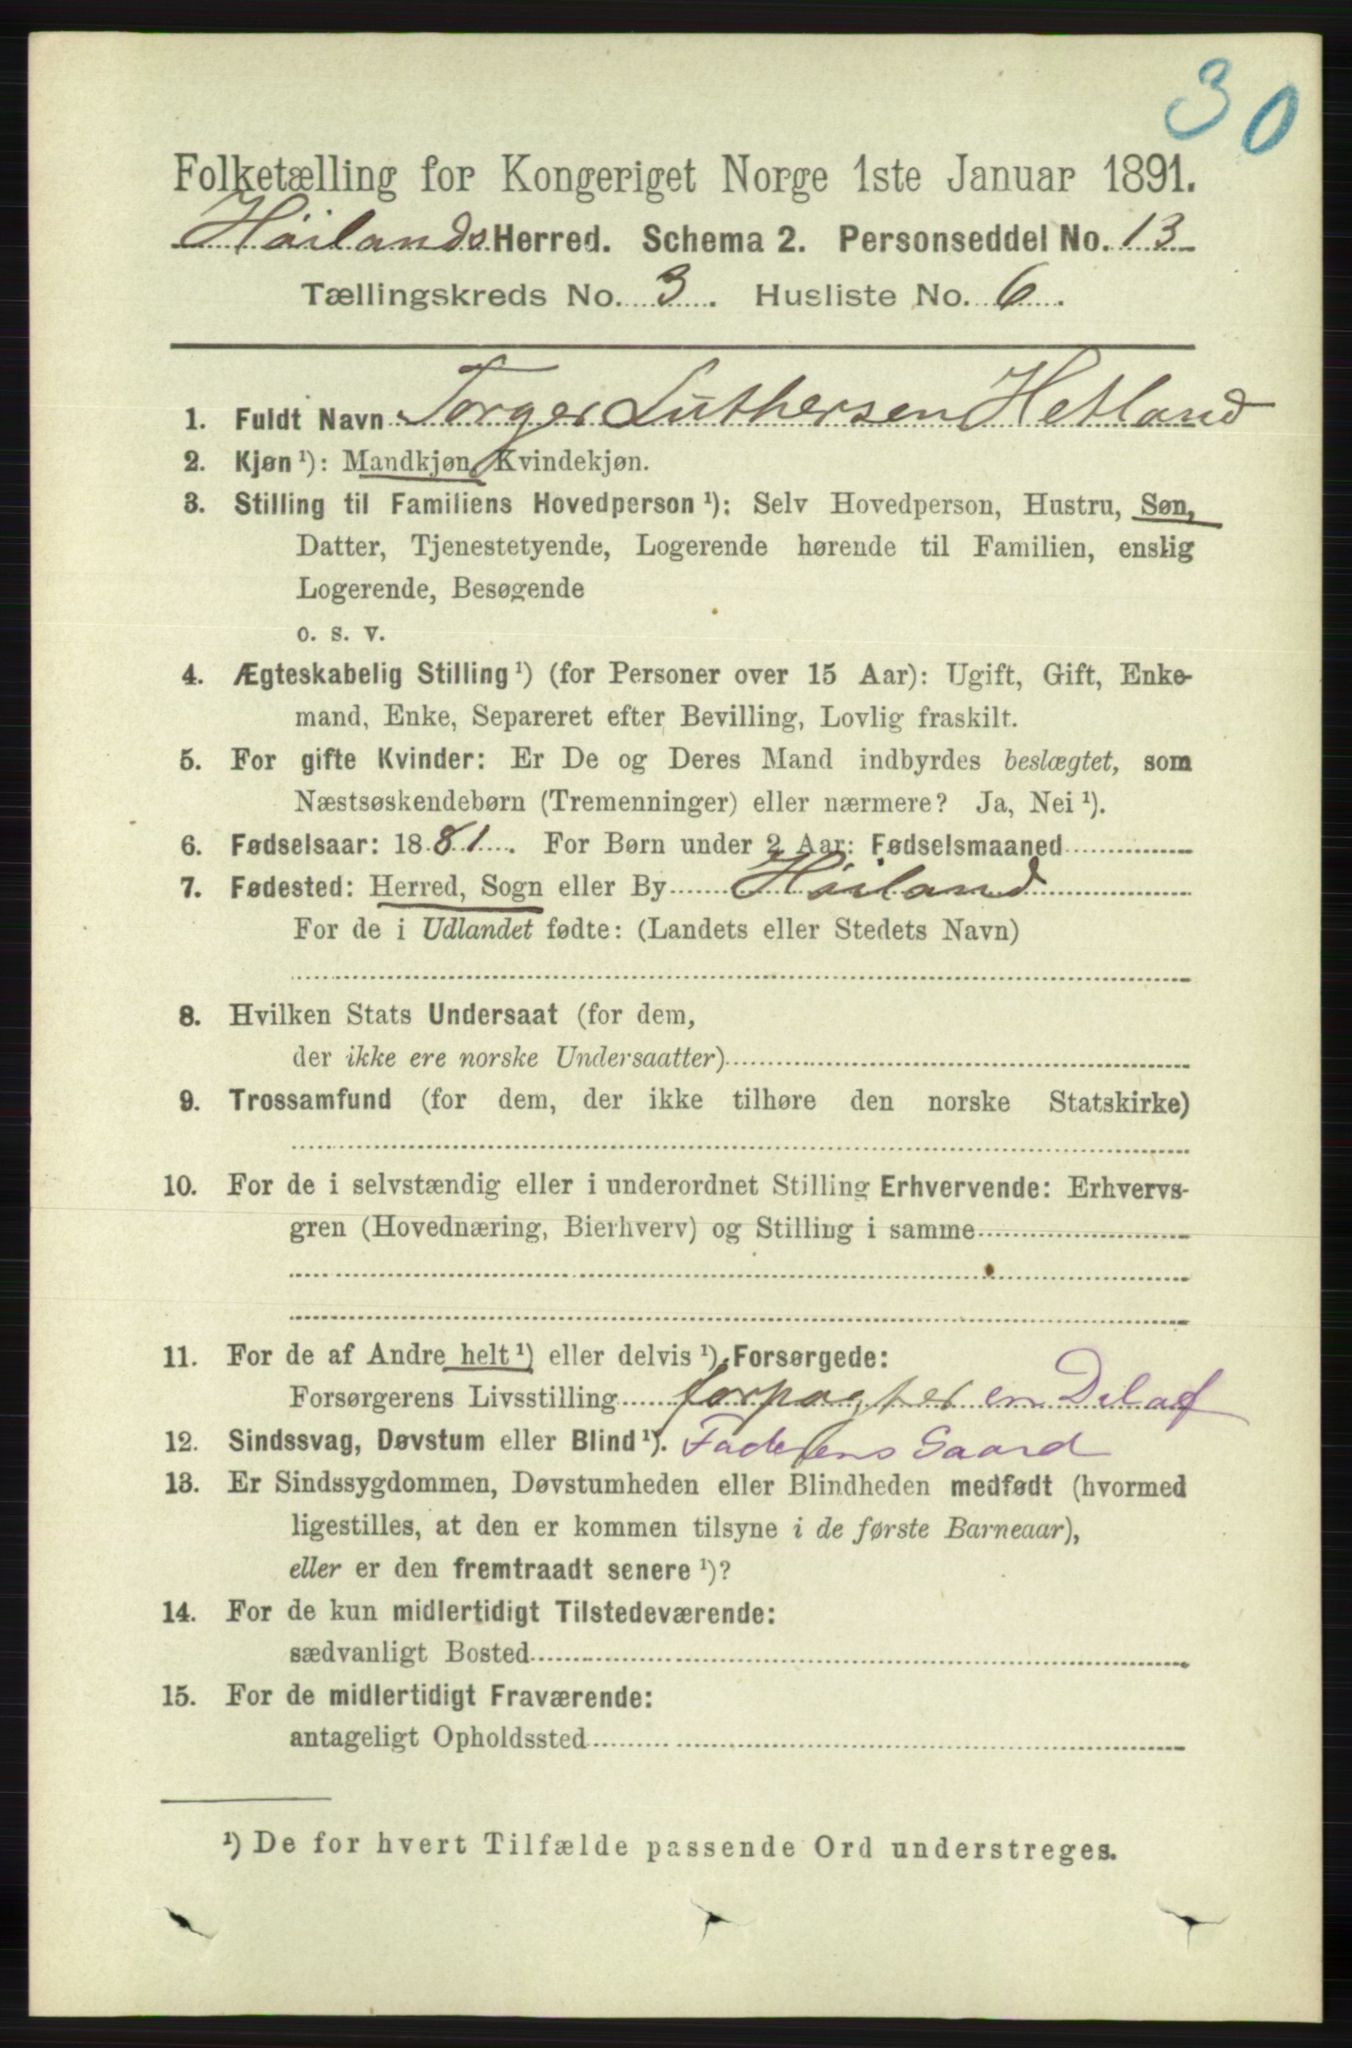 30
Folketælling for Kongeriget Norge 1ste Januar 1891.
Høilands Herred. Schema 2. Personseddel No. 13
Tællingskreds No. 3. Husliste No. 6.
1. Fuldt Navn Torger Luthersen Hetland
2. Kjøn ¹): Mandkjøn, Kvindekjøn.
3. Stilling til Familiens Hovedperson ¹): Selv Hovedperson, Hustru, Søn,
Datter, Tjenestetyende, Logerende hørende til Familien, enslig
Logerende, Besøgende
o. s. v.
4. Ægteskabelig Stilling ¹) (for Personer over 15 Aar): Ugift, Gift, Enke-
mand, Enke, Separeret efter Bevilling, Lovlig fraskilt.
5. For gifte Kvinder: Er De og Deres Mand indbyrdes beslægtet, som
Næstsøskendebørn (Tremenninger) eller nærmere? Ja, Nei ¹).
6. Fødselsaar: 1881. For Børn under 2 Aar: Fødselsmaaned
7. Fødested: Herred, Sogn eller By Høiland
For de i Udlandet fødte: (Landets eller Stedets Navn)
8. Hvilken Stats Undersaat (for dem,
der ikke ere norske Undersaatter)
9. Trossamfund (for dem, der ikke tilhøre den norske Statskirke)
10. For de i selvstændig eller i underordnet Stilling Erhvervende: Erhvervs-
gren (Hovednæring, Bierhverv) og Stilling i samme
11. For de af Andre helt ¹) eller delvis ¹) Forsørgede:
Forsørgerens Livsstilling forpagter en Del af
12. Sindssvag, Døvstum eller Blind ¹). Faderens Gaard
13. Er Sindssygdommen, Døvstumheden eller Blindheden medfødt (hvormed
ligestilles, at den er kommen tilsyne i de første Barneaar),
eller er den fremtraadt senere ¹)?
14. For de kun midlertidigt Tilstedeværende:
sædvanligt Bosted
15. For de midlertidigt Fraværende:
antageligt Opholdssted
¹) De for hvert Tilfælde passende Ord understreges.